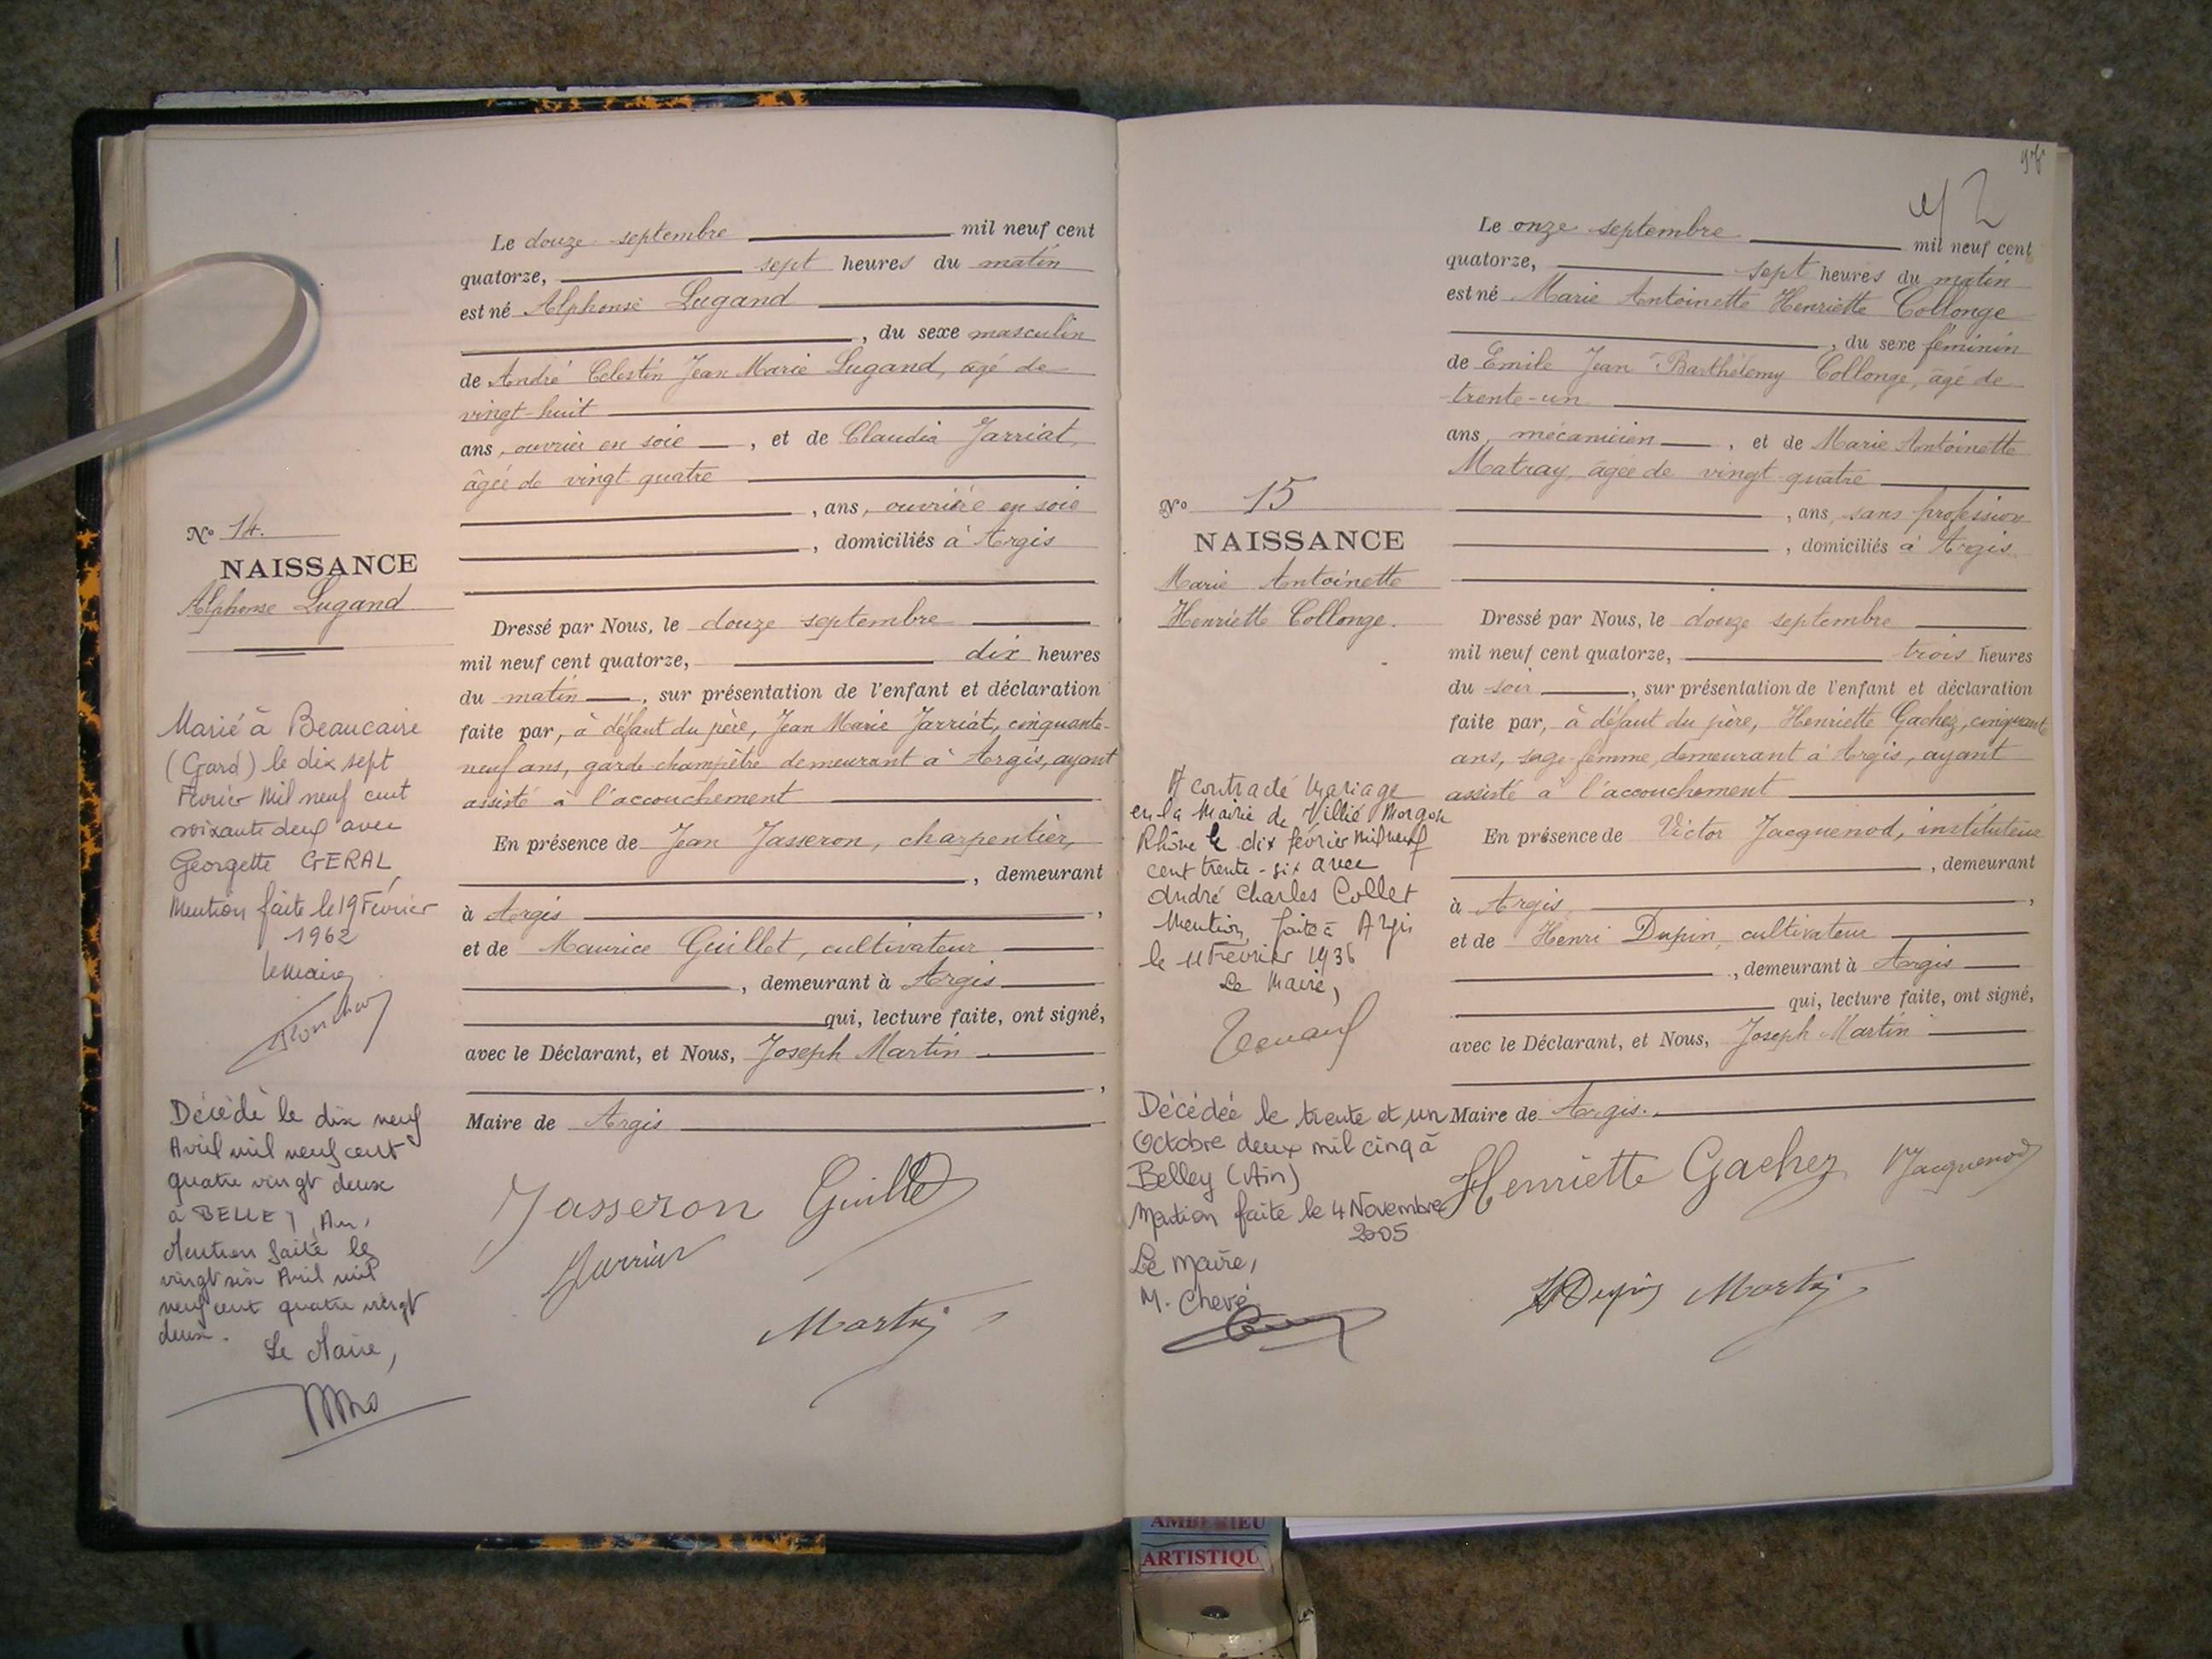 Le douze septembre mil neuf cent
quatorze, sept heures du matin
est né Alphonse Lugand
, du sexe masculin
de André Célestin Jean Marie Lugand, âgé de
vingt-huit
ans, ouvrier en soie, et de Claudia Jarriat,
âgée de vingt-quatre
, ans, ouvrière en soie
, domiciliés à Argis
N° 14.
NAISSANCE
Alphonse Lugand
Dressé par Nous, le douze septembre
mil neuf cent quatorze, dix heures
du matin, sur présentation de l'enfant et déclaration
faite par, à défaut du père, Jean Marie Jarriat, cinquante-
neuf ans, garde-champêtre demeurant à Argis, ayant
assisté à l'accouchement
En présence de Jean Jasseron, charpentier,
, demeurant
à Argis,
et de Maurice Guillet, cultivateur
, demeurant à Argis
qui, lecture faite, ont signé,
avec le Déclarant, et Nous, Joseph Martin
,
Maire de Argis
Jasseron Guillet
Jarriat
Martin
Marié à Beaucaire
(Gard) le dix sept
Février Mil neuf cent
soixante deux avec
Georgette GERAL
Mention faite le 19 Février
1962
le Maire,
Décédé le dix neuf
Avril mil neuf cent
quatre vingt deux
à BELLEY, Ain,
Mention faite le
vingt six Avril mil
neuf cent quatre vingt
deux.
Le Maire,
42
Le onze septembre mil neuf cent
quatorze, sept heures du matin
est né Marie Antoinette Henriette Collonge
, du sexe féminin
de Emile Jean-Barthélemy Collonge, âgé de
trente-un
ans, mécanicien, et de Marie Antoinette
Matray, âgée de vingt-quatre
, ans, sans profession
, domiciliés à Argis
N° 15
NAISSANCE
Marie Antoinette
Henriette Collonge.
Dressé par Nous, le douze septembre
mil neuf cent quatorze, trois heures
du soir, sur présentation de l'enfant et déclaration
faite par, à défaut du père, Henriette Gachez, cinquante
ans, sage-femme, demeurant à Argis, ayant
assisté à l'accouchement
En présence de Victor Jacquenod, instituteur
, demeurant
à Argis,
et de Henri Dupin, cultivateur
, demeurant à Argis
qui, lecture faite, ont signé,
avec le Déclarant, et Nous, Joseph Martin
Maire de Argis.
Henriette Gachez VJacquenod
HDupin Martin
A contracté Mariage
en la Mairie de Villié Morgon
Rhône le dix février Mil neuf
cent trente-six avec
André Charles Collet
Mention faite à Argis
le 11 Février 1936
Le Maire,
Décédée le trente et un
Octobre deux mil cinq à
Belley (Ain)
Mention faite le 4 Novembre
2005
Le Maire,
M. Chevé
AMBERIEU
ARTISTIQU